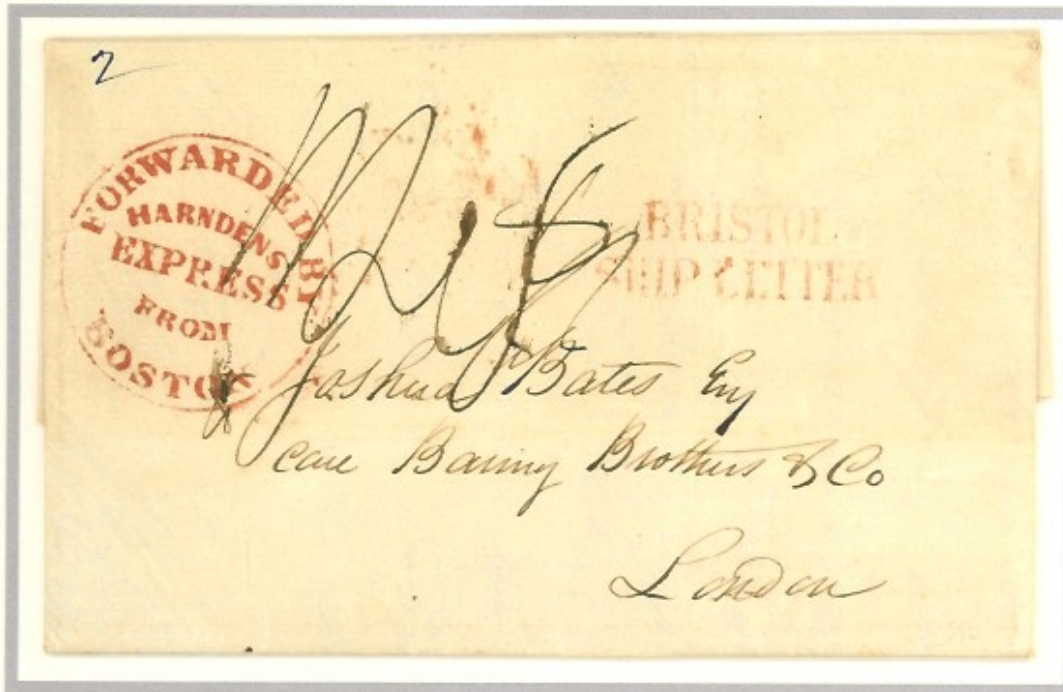 2
FORWARDED BY
HARNDENS
EXPRESS
FROM
BOSTON
BRISTOL
SHIP LETTER
Joshua Bates Esq
care Baring Brothers & Co
London